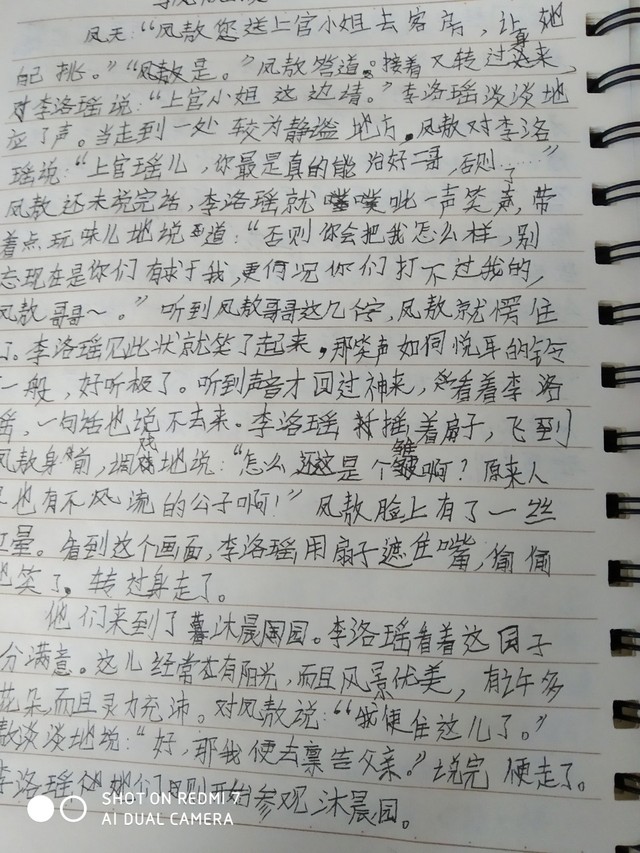 凤天：“凤敖您送上官小姐去客房，让她
自己挑。”“凤敖是。”凤敖答道。接着又转过来，
对李洛瑶说：“上官小姐这边请。”李洛瑶淡淡地
应了声。当走到一处较为静谧地方。凤敖对李洛
瑶说：“上官瑶儿，你最是真的能治好二哥，否则……”
凤敖还未说完话，李洛瑶就噗呲一声笑了，带
着点玩味儿地说道：“否则你会把我怎么样，别
忘现在是你们有求于我，更何况你们打不过我的，
凤敖哥哥～。”听到凤敖哥哥这几个字，凤敖就愣住
了。李洛瑶见此状就笑了起来，那笑声如同悦耳的铃
一般，好听极了。听到声音才回过神来，看着李洛
瑶，一句话也说不去来。李洛瑶摇着扇子，飞到
凤敖身前，调戏地说：“怎么这是个雏啊？原来人
也有不风流的公子啊！”凤敖脸上有了一丝
红晕。看到这个画面，李洛瑶用扇子遮住嘴，偷偷
地笑了。转过身走了。
他们来到了沐晨园。李洛瑶看着这园子
分满意。这儿经常有阳光，而且风景优美，有许多
花朵，而且灵力充沛。对凤敖说：“我便住这儿了。”
敖淡淡地说：“好，那我便去禀告父亲。”说完便走了。
李洛瑶她们开始参观沐晨园。
SHOT ON REDMI 7
AI DUAL CAMERA